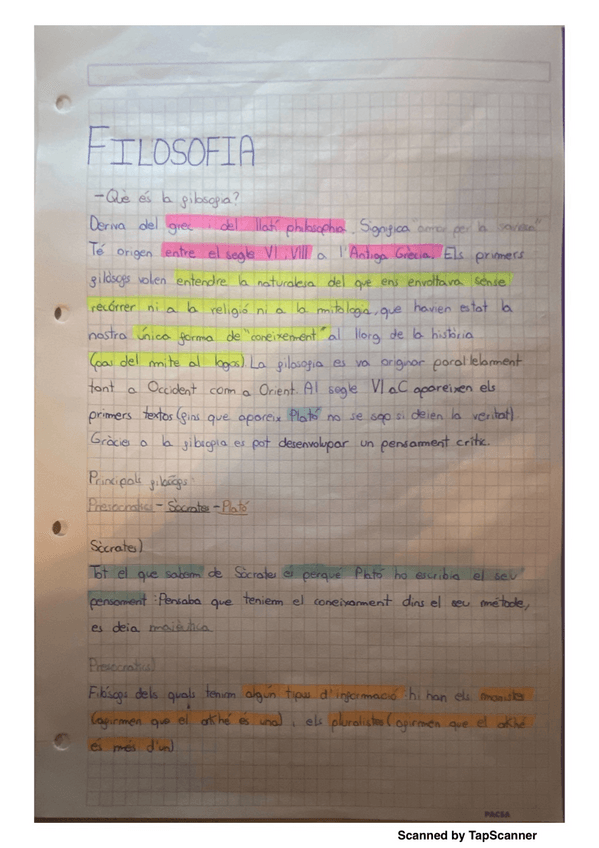 FILOSOFIA
- Què és la filosofia?
Deriva del grec i del llatí philosophia. Significa "amor per la saviesa"
Té origen entre el segle VI i VIII a l'Antiga Grècia. Els primers
filósofs volen entendre la naturalesa del que ens envoltava sense
recórrer ni a la religió ni a la mitologia, que havien estat la
nostra única forma de "coneixement" al llorg de la història
(pas del mite al logos) La filosofia es va originar paral·lelament
tant a Occident com a Orient. Al segle VI aC apareixen els
primers textos (fins que apareix Plató no se sap si deien la veritat).
Gràcies a la filosofia es pot desenvolupar un pensament crític.
Principals filósofs:
Presocràtics - Sòcrates - Plató
Sòcrates)
Tot el que sabem de Sòcrates és perquè Plató ho escribia el seu
pensament: Pensaba que teniem el coneixament dins el seu mètode,
es deia maièutica
Presocràtics)
Filósofs dels quals tenim algún tipus d'informació: hi han els monistes
(afirmen que el arkhé és una), els pluralistes (afirmen que el arkhé
és més d'un)
PACSA
Scanned by TapScanner